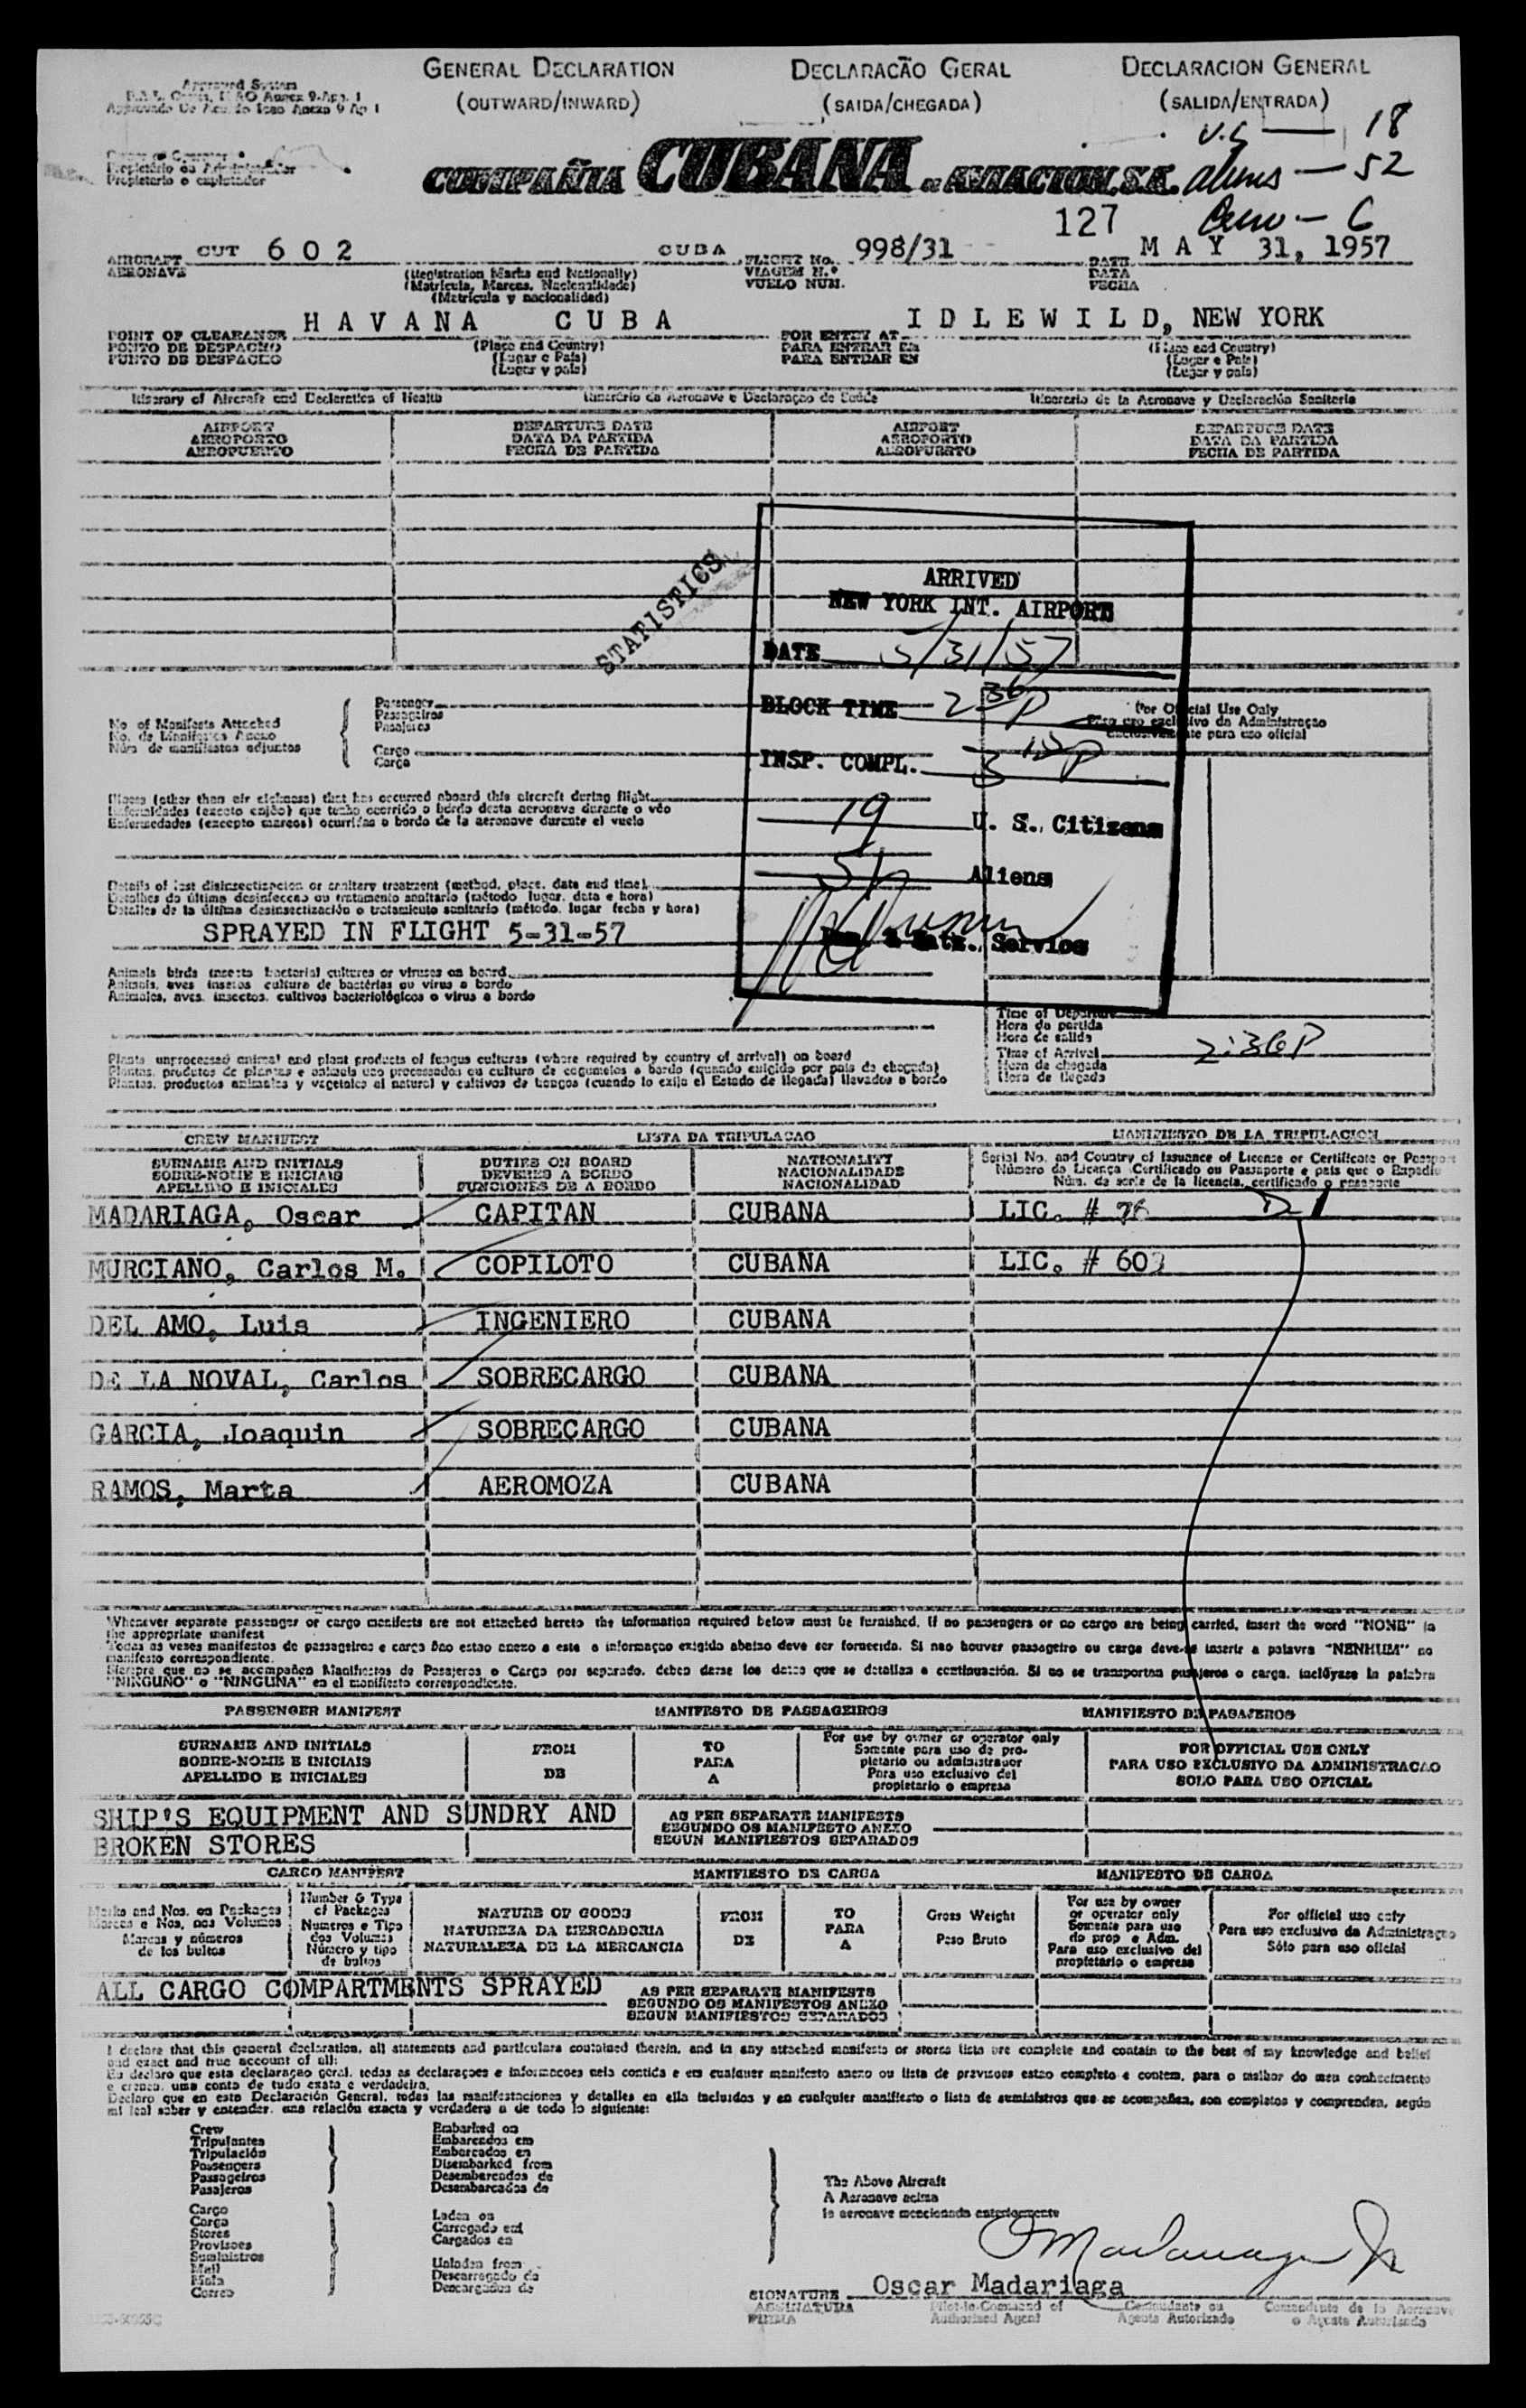 GENERAL DECLARATION
(OUTWARD/INWARD)
DECLARACÃO GERAL
(SAIDA/CHEGADA)
DECLARACION GENERAL
(SALIDA/ENTRADA)
Approved System
U.S. — 18
aliens — 52
Crew — 6
COMPAÑIA CUBANA DE AVIACION, S.A.
127
AIRCRAFT CUT 602 CUBA FLIGHT No. 998/31 DATE MAY 31, 1957
AERONAVE (Registration Marks and Nationally) VIAGEM N.º DATA
(Matricula, Marcas, Nacionalidade) VUELO NUM. FECHA
(Matrícula y nacionalidad)
POINT OF CLEARANCE HAVANA CUBA FOR ENTRY AT IDLEWILD, NEW YORK
PONTO DE DESPACHO (Place and Country) PARA ENTRAR EM (Place and Country)
PUNTO DE DESPACHO (Lugar e Pais) PARA ENTRAR EN (Lugar e Pais)
(Lugar y pais) (Lugar y pais)
Itinerary of Aircraft and Declaration of Health Itinerário da Aeronave e Declaraçao de Saúde Itinerario de la Aeronave y Declaración Sanitaria
AIRPORT DEPARTURE DATE AIRPORT DEPARTURE DATE
AEROPORTO DATA DA PARTIDA AEROPORTO DATA DA PARTIDA
AEROPUERTO FECHA DE PARTIDA AEROPUERTO FECHA DE PARTIDA
STATISTICS
ARRIVED
NEW YORK INT. AIRPORT
DATE 5/31/57
BLOCK TIME 2 36 P
INSP. COMPL. 3 15 P
19 U. S. Citizens
51 Aliens
Imm. & Natz. Service
No. of Manifests Attached
Núm. de manifiestos adjuntos
Passenger
Passageiros
Pasajeros
Cargo
Carga
For Official Use Only
Para uso exclusivo da Administraçao
Exclusivamente para uso oficial
Illness (other than air sickness) that has occurred aboard this aircraft during flight
Enfermidades (exceto enjôo) que tenha ocorrido a bordo desta aeronave durante o vôo
Enfermedades (excepto mareos) ocurridas a bordo de la aeronave durante el vuelo
Details of last disinsectisacion or sanitary treatment (method, place, date and time)
Detalhes da última desinfeccao ou tratamento sanitario (método lugar, data e hora)
Detalles de la última desinsectización o tratamiento sanitario (método, lugar fecha y hora)
SPRAYED IN FLIGHT 5-31-57
Animals birds insects bacterial cultures or viruses on board
Animais, aves insetos cultura de bactérias ou virus a bordo
Animales, aves, insectos, cultivos bacteriológicos o virus a bordo
Time of Departure
Hora da partida
Hora de salida
Time of Arrival 2:36P
Hora da chegada
Hora de llegada
Plants unprocessed animal and plant products of fungus cultures (where required by country of arrival) on board
Plantas, produtos de plantas e animais nao processados ou cultura de cogumelos a bordo (quando exigido por pais de chegada)
Plantas, productos animales y vegetales al natural y cultivos de hongos (cuando lo exija el Estado de llegada) llevados a bordo
CREW MANIFEST LISTA DA TRIPULACAO MANIFIESTO DE LA TRIPULACION
SURNAME AND INITIALS DUTIES ON BOARD NATIONALITY Serial No. and Country of Issuance of License or Certificate or Passport
SOBRE-NOME E INICIAIS DEVERES A BORDO NACIONALIDADE Número da Licença Certificado ou Passaporte e pais que o Expediu
APELLIDO E INICIALES FUNCIONES DE A BORDO NACIONALIDAD Núm. de serie de la licencia, certificado o pasaporte
MADARIAGA, Oscar CAPITAN CUBANA LIC. # 76 D1
MURCIANO, Carlos M. COPILOTO CUBANA LIC. # 603
DEL AMO, Luis INGENIERO CUBANA
DE LA NOVAL, Carlos SOBRECARGO CUBANA
GARCIA, Joaquin SOBRECARGO CUBANA
RAMOS, Marta AEROMOZA CUBANA
Whenever separate passenger or cargo manifests are not attached hereto the information required below must be furnished. If no passengers or no cargo are being carried, insert the word "NONE" in
the appropriate manifest
Todas as vezes manifestos de passageiros e carga nao estao anexo a este a informaçao exigida abaixo deve ser fornecida. Si nao houver passageiro ou carga deve-se inserir a palavra "NENHUM" no
manifesto correspondiente.
Siempre que no se acompañen Manifiestos de Pasajeros o Carga por separado, deben darse los datos que se detallan a continuación. Si no se transportan pasajeros o carga, inclúyase la palabra
"NINGUNO" o "NINGUNA" en el manifiesto correspondiente.
PASSENGER MANIFEST MANIFESTO DE PASSAGEIROS MANIFIESTO DE PASAJEROS
SURNAME AND INITIALS FROM TO For use by owner or operator only FOR OFFICIAL USE ONLY
SOBRE-NOME E INICIAIS DE PARA Somente para uso de proprietario ou administrador PARA USO EXCLUSIVO DA ADMINISTRACAO
APELLIDO E INICIALES A Para uso exclusivo del propietario o empresa SOLO PARA USO OFICIAL
SHIP'S EQUIPMENT AND SUNDRY AND AS PER SEPARATE MANIFESTS
BROKEN STORES SEGUNDO OS MANIFESTO ANEXO
SEGUN MANIFIESTOS SEPARADOS
CARGO MANIFEST MANIFIESTO DE CARGA MANIFESTO DE CARGA
Marks and Nos. on Packages Number & Type of Packages NATURE OF GOODS FROM TO Gross Weight For use by owner or operator only For official use only
Marcas e Nos. nos Volumes Numeros e Tipo dos Volumes NATUREZA DA MERCADORIA DE PARA Peso Bruto Somente para uso do prop e Adm. Para uso exclusivo da Administraçao
Marcas y números de los bultos Número y tipo de bultos NATURALEZA DE LA MERCANCIA A Para uso exclusivo del propietario o empresa Sólo para uso oficial
ALL CARGO COMPARTMENTS SPRAYED AS PER SEPARATE MANIFESTS
SEGUNDO OS MANIFESTOS ANEXO
SEGUN MANIFIESTOS SEPARADOS
I declare that this general declaration, all statements and particulars contained therein, and in any attached manifests or stores lists are complete and contain to the best of my knowledge and belief
and exact and true account of all:
Eu declaro que esta declaraçao geral, todas as declaraçoes e informacoes nela contida e em cualquer manifesto anexo ou lista de previsoes estao completo e contem, para o malhor do meu conhecimento
e crenca, uma conta de tudo exata e verdadeira.
Declaro que en esta Declaración General, todas las manifestaciones y detalles en ella incluidos y en cualquier manifiesto o lista de suministros que se acompañan, son completos y comprenden, según
mi leal saber y entender, una relación exacta y verdadera a de todo lo siguiente:
Crew Embarked on
Tripulantes Embarcados em
Tripulación Embarcados en
Passengers Disembarked from
Passageiros Desembarcados de
Pasajeros Desembarcados de
Cargo
Carga
Stores
Provisoes
Suministros
Mail
Mala
Correo
Laden on
Carregado em
Cargados en
Unladen from
Descarregado da
Descargados de
The Above Aircraft
A Aeronave acima
la aeronave mencionada anteriormente
O Madariaga
SIGNATURE Oscar Madariaga
ASSINATURA Pilot-in-Command of Comandante ou Comandante de la Aeronave
FIRMA Authorised Agent Agente Autorizado o Agente Autorizado